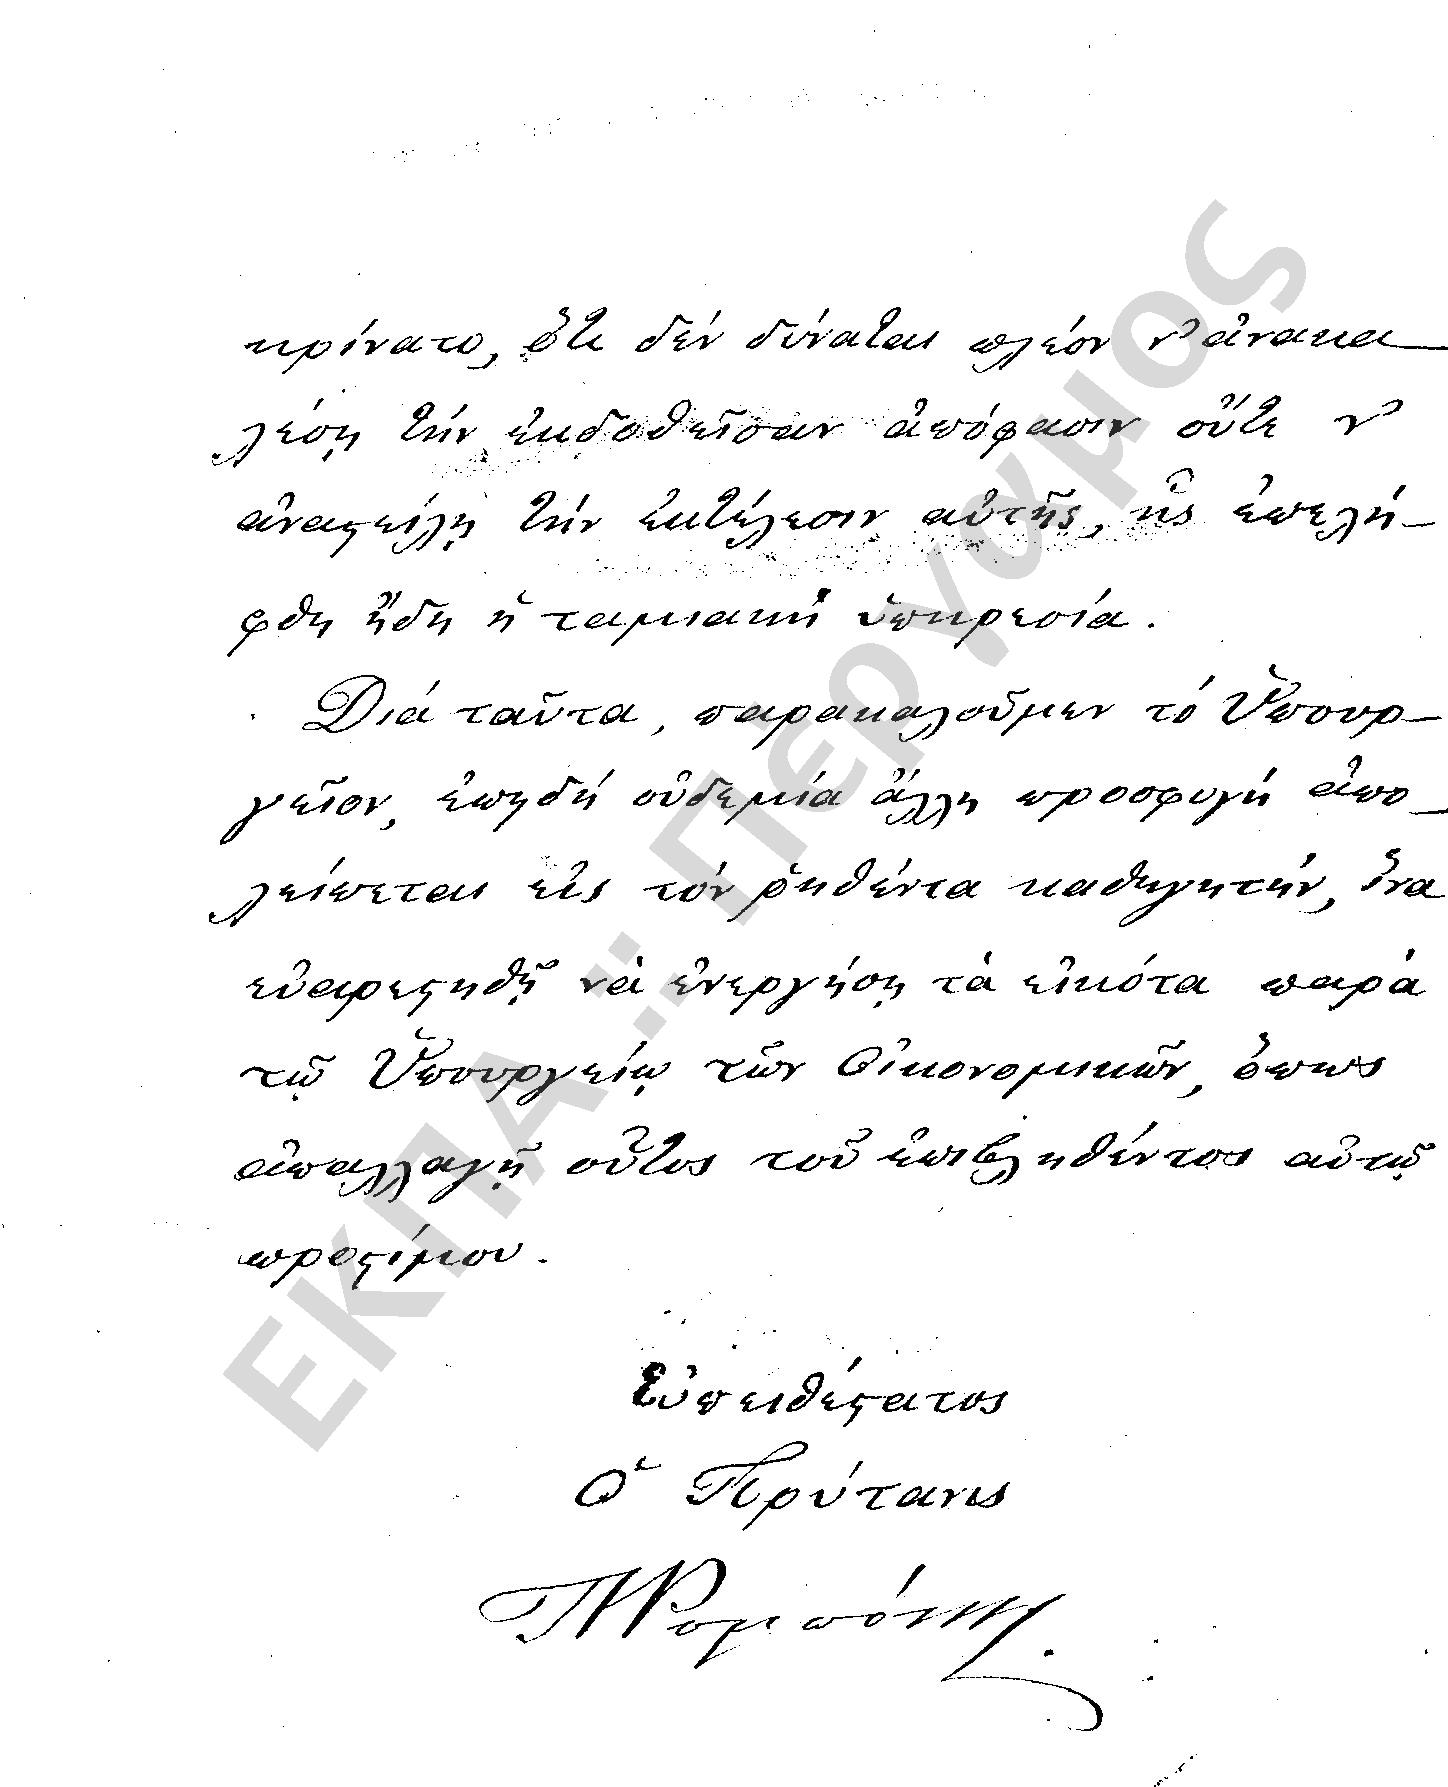 κρίνατο, ὅτι δέν δύναται πλέον ν' ἀνακα-
λέσῃ τήν ἐκδοθεῖσαν ἀπόφασιν οὔτε ν'
ἀναστείλῃ τήν ἐκτέλεσιν αὐτῆς, ἧς ἐπελή-
φθη ἤδη ἡ ταμιακή ὑπηρεσία.
Διά ταῦτα, παρακαλοῦμεν τό Ὑπουρ-
γεῖον, ἐπειδή οὐδεμία ἄλλη προσφυγή ἀπο-
λείπεται εἰς τόν ῥηθέντα καθηγητήν, ἵνα
εὐαρεστηθῇ νά ἐνεργήσῃ τά εἰκότα παρά
τῷ Ὑπουργείῳ τῶν Οἰκονομικῶν, ὅπως
ἀπαλλαγῇ οὗτος τοῦ ἐπιβληθέντος αὐτῷ
προστίμου.
Εὐπειθέστατος
Ὁ Πρύτανις
ΕΚΠΑ :: Πέργαμος